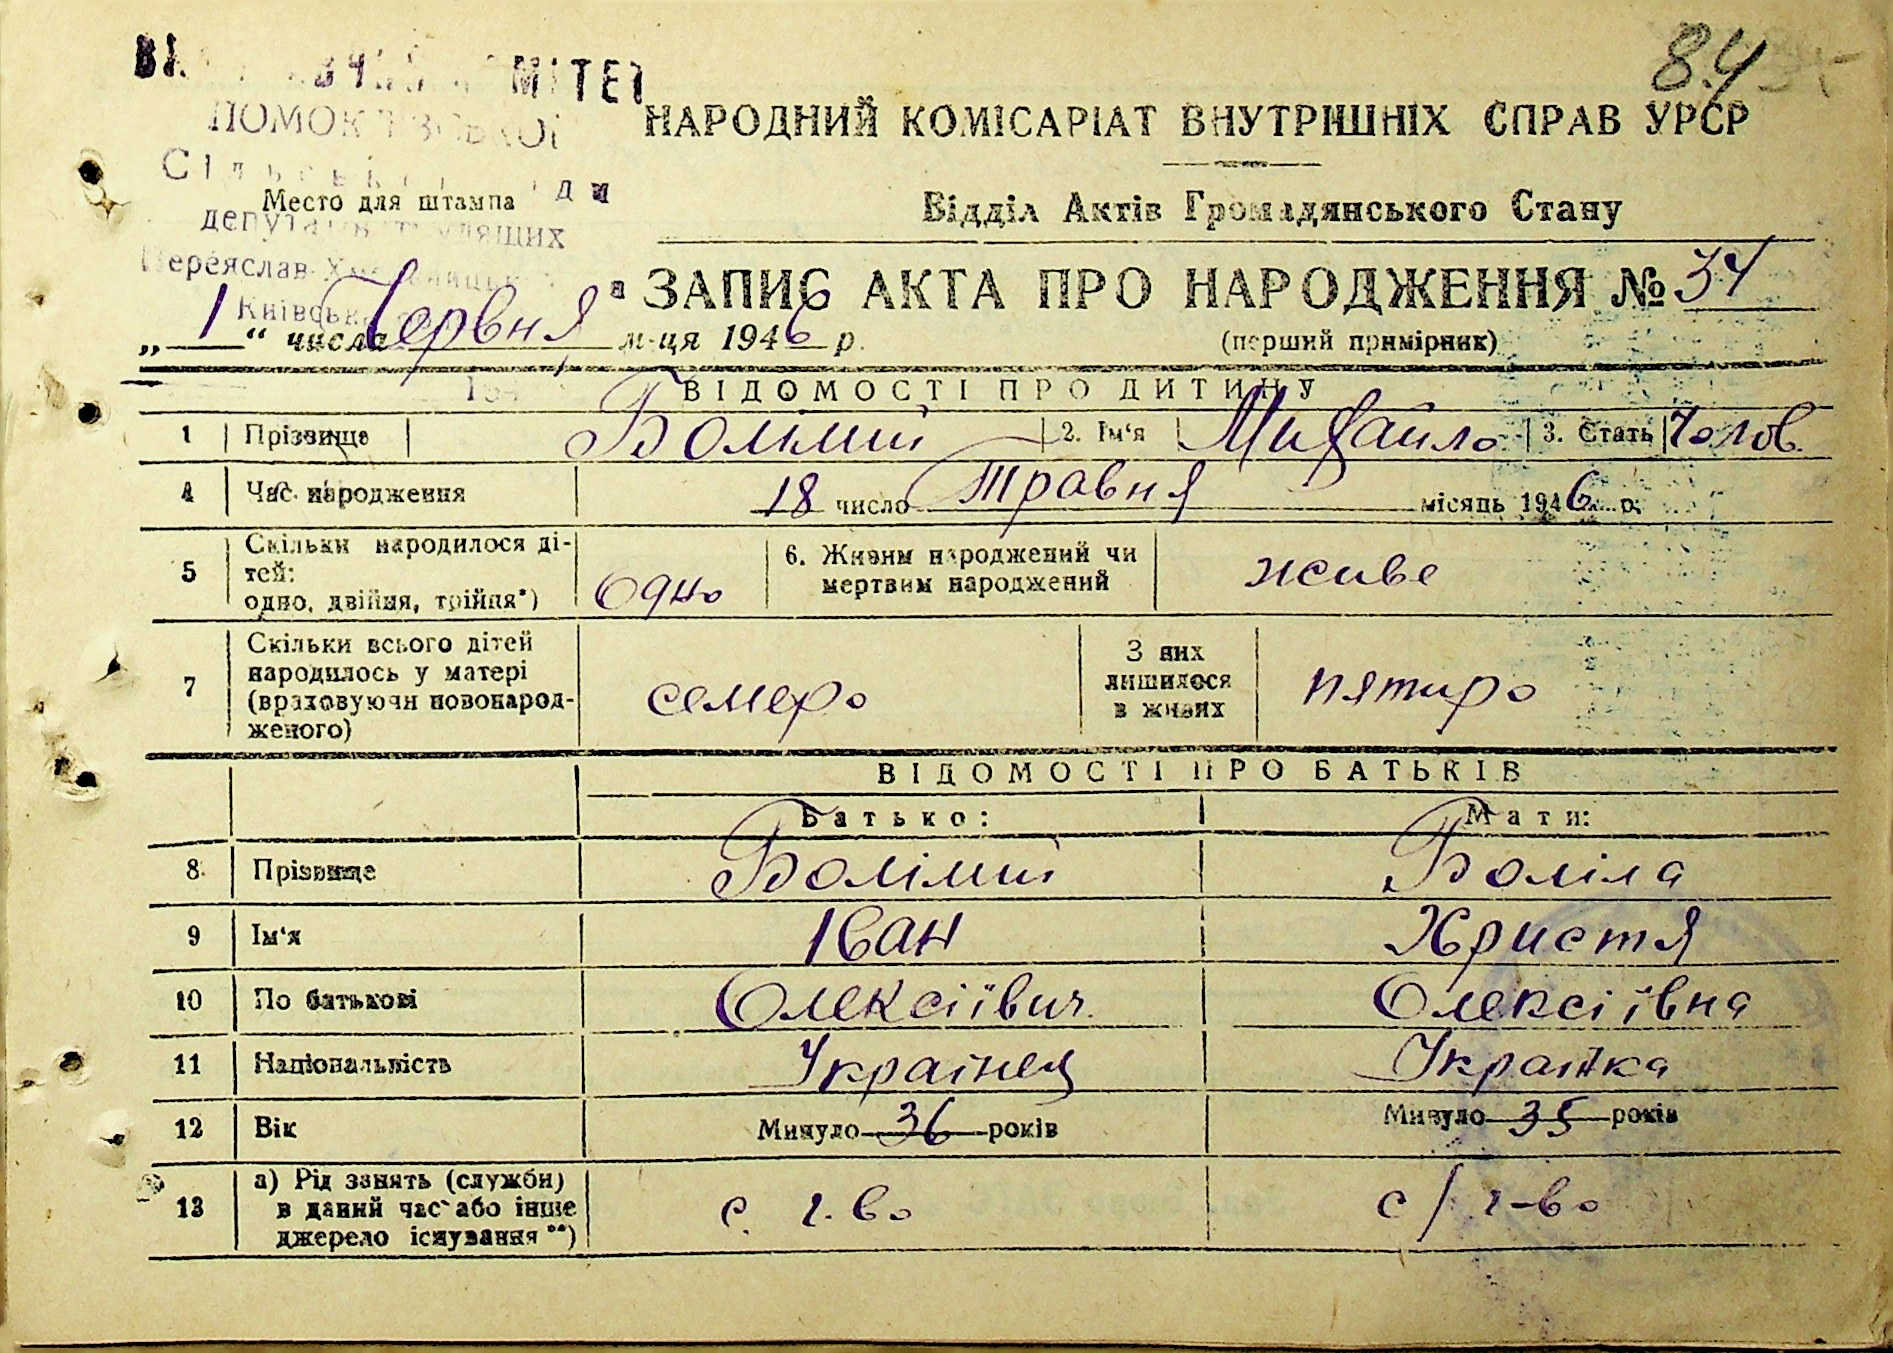 84
НАРОДНИЙ КОМІСАРІАТ ВНУТРІШНІХ СПРАВ УРСР
Место для штампа
Відділ Актів Громадянського Стану
ЗАПИС АКТА ПРО НАРОДЖЕННЯ № 34
„ 1 “ числа Червня м-ця 1946 р.
(перший примірник)
ВІДОМОСТІ ПРО ДИТИНУ
1 Прізвище 2. Ім'я Михайло 3. Стать Чолов.
4 Час народження 18 число Травня місяць 1946 р.
5 Скільки народилося ді-
тей:
одно, двійня, трійня*) Одно
6. Живим народжений чи
мертвим народжений живе
7 Скільки всього дітей
народилось у матері
(враховуючи новонарод-
женого) семеро
З них
лишилося
в живих пятиро
ВІДОМОСТІ ПРО БАТЬКІВ
Батько: Мати:
8 Прізвище
9 Ім'я Іван Христя
10 По батькові Олексіївич Олексіївна
11 Національність Українец Українка
12 Вік Минуло 36 років Минуло 35 років
13 а) Рід занять (служби)
в даний час або інше
джерело існування **) с. г-во с/г-во